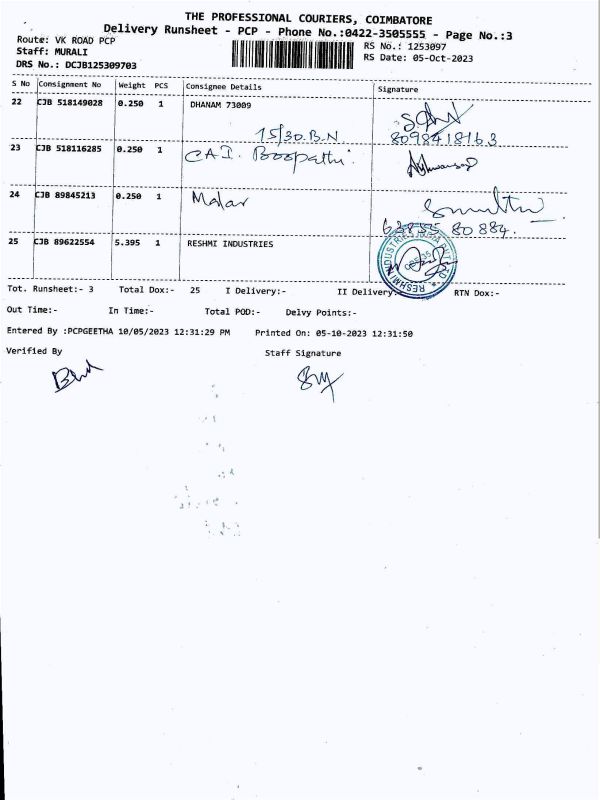 THE PROFESSIONAL COURIERS, COIMBATORE
Delivery Runsheet - PCP - Phone No.:0422-3505555 - Page No.:3
Route: VK ROAD PCP RS No.: 1253097
Staff: MURALI RS Date: 05-Oct-2023
DRS No.: DCJB125309703
S No Consignment No Weight PCS Consignee Details Signature
22 CJB 518149028 0.250 1 DHANAM 73009
15/30.B.N 8098418163
23 CJB 518116285 0.250 1 CAI. Boopathi
24 CJB 89845213 0.250 1 Malar
63855 80884.
25 CJB 89622554 5.395 1 RESHMI INDUSTRIES
RESHMI INDUSTRIES INDIA PVT
Tot. Runsheet:- 3 Total Dox:- 25 I Delivery:- II Delivery:- RTN Dox:-
Out Time:- In Time:- Total POD:- Delvy Points:-
Entered By :PCPGEETHA 10/05/2023 12:31:29 PM Printed On: 05-10-2023 12:31:50
Verified By Staff Signature